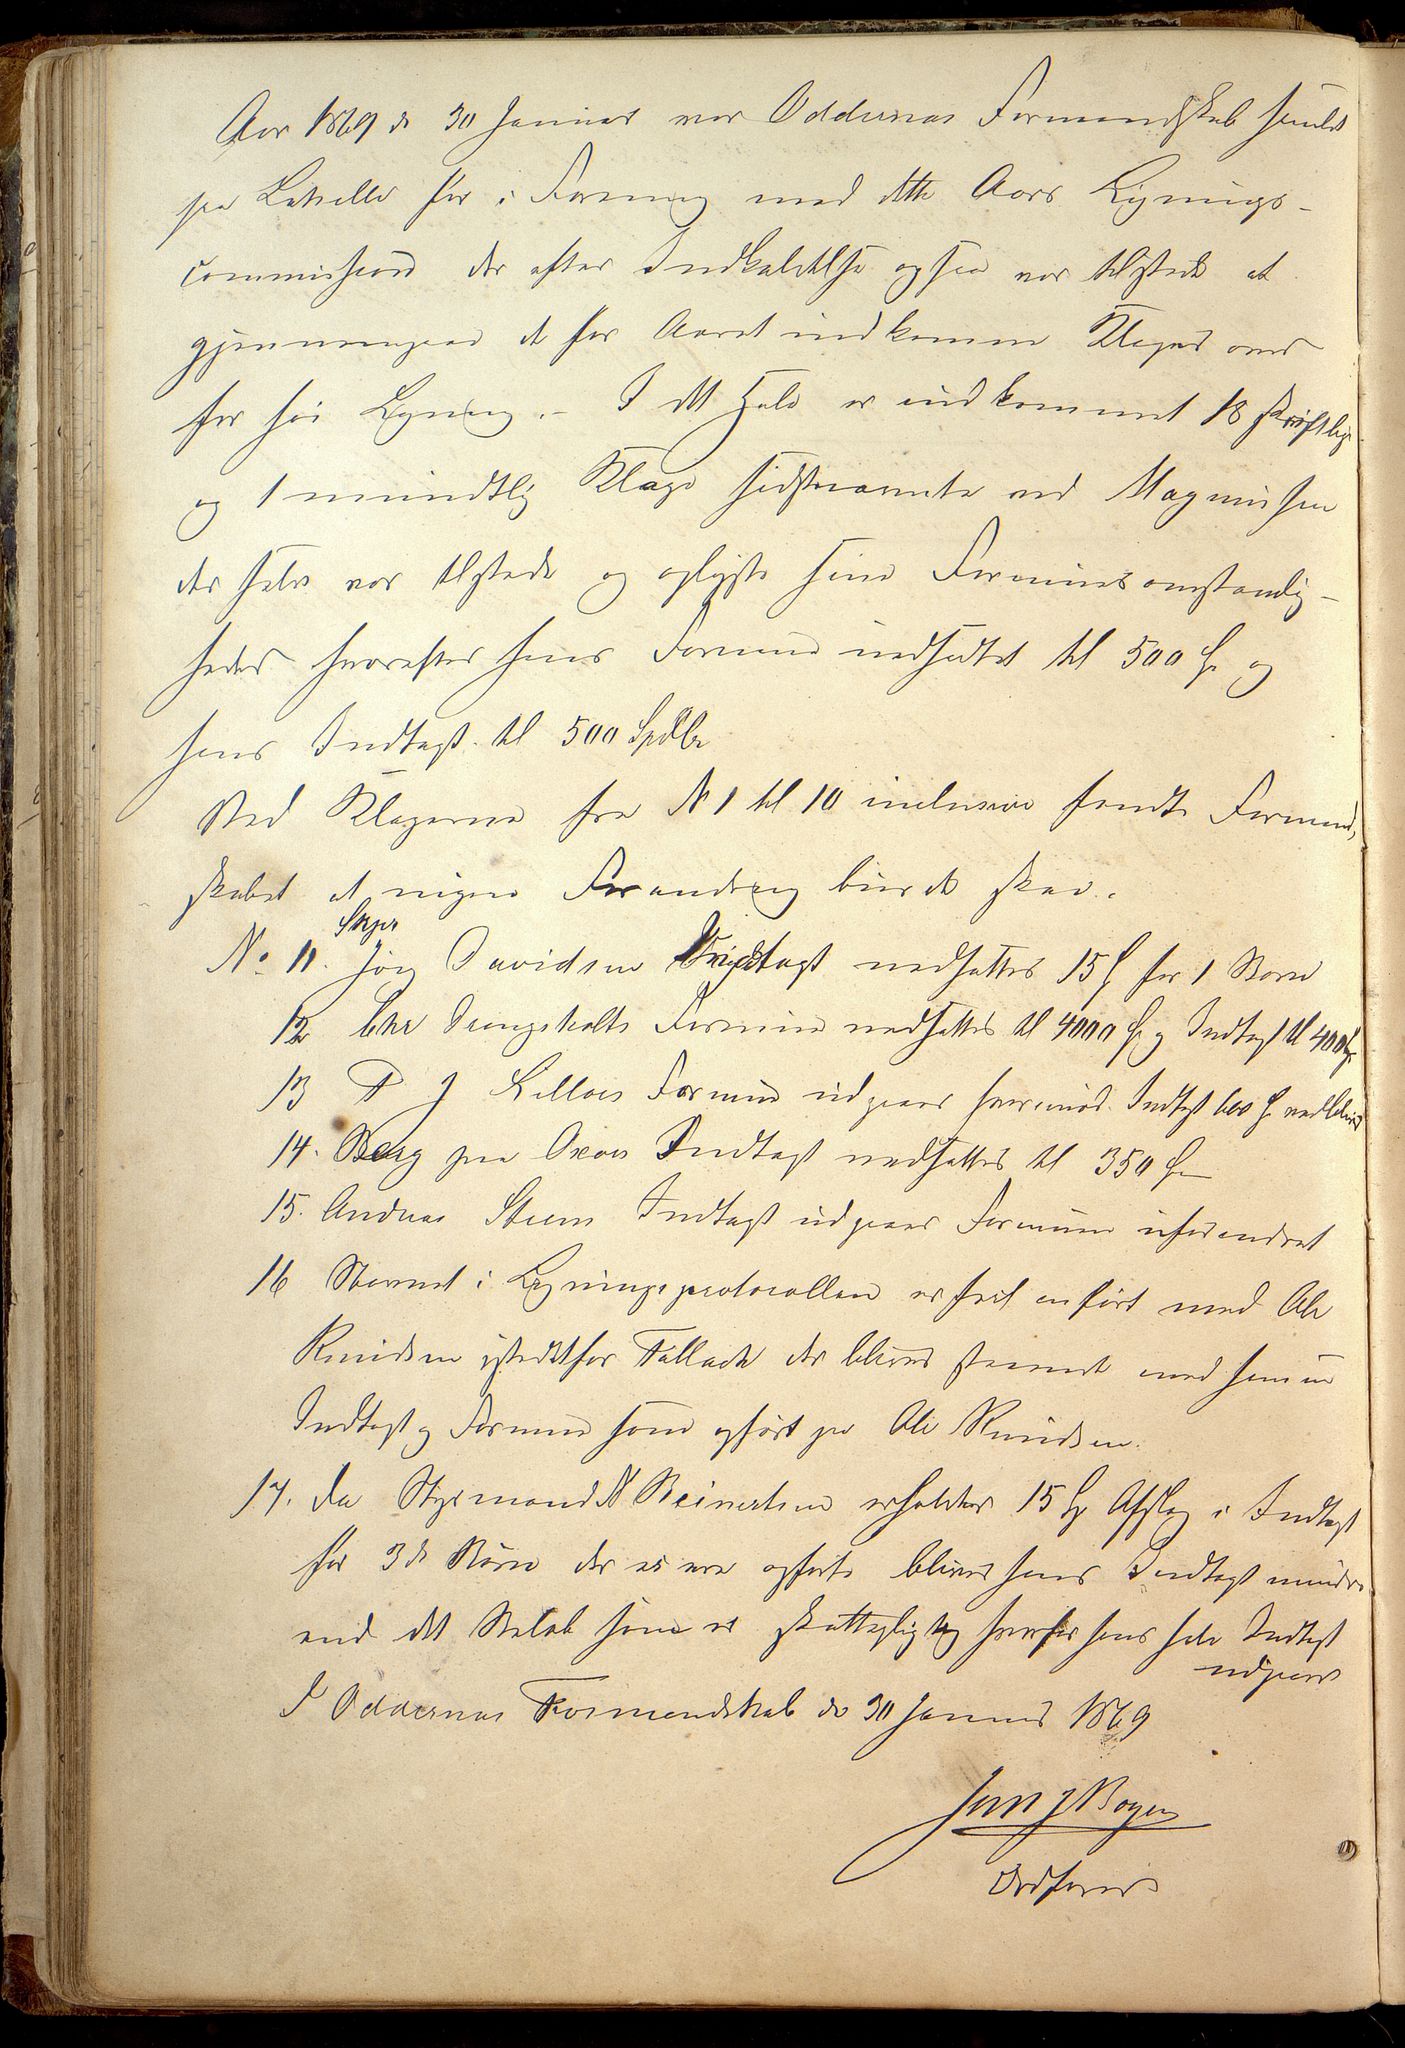 Aar 1869 d 30 Januar var Oddernes Formandskab samlet
paa Lahelle for i Forening med dette Aars Lignings-
commission der efter Indkaldelse ogsaa var tilstede at
gjennemgaa de for Aaret indkomne Klager over
for høi Ligning. - I alt er indkommet 18 skriftlige
og 1 mundtlig Klage sidstnævnte ved Magnussen
der selv var tilstede og oplyste sine Formuesomstændig-
heder hvorefter hans Formue nedsattes til 500 Sp og
hans Indtægt til 500 Spdlr
Ved Klagerne fra N 1 til 10 inclusive fandt Formand-
skabet at ingen Forandring burde skee.
No 11. Jørg Davidsen Indtægt nedsattes 15 Sp for 1 Barn
12 Chr Formue nedsattes til 4000 Sp og Indtægt til 400 Sp
13 P J Formue udgaaer hvorimod Indtægt 600 Sp vedbliver
14. Berg paa Oxøen Indtægt nedsattes til 350 Sp
15. Andreas Steen Indtægt udgaaer Formue uforandret
16 Navnet i Ligningsprotocollen er feil anført med Ole
Knudsen istedetfor Tallack der bliver med samme
Indtægt og Formue som opført paa Ole Knudsen.
17. Da Styrmand N Reinertsen erholder 15 Sp Afslag i Indtægt
for 3de Børn der ei ere opførte bliver hans Indtægt mindre
end det Beløb som er skattepligtig hvorfor hans hele Indtægt
udgaaer
I Oddernes Formandskab d 30 Januar 1869
Jens J Boyen
Ordfører